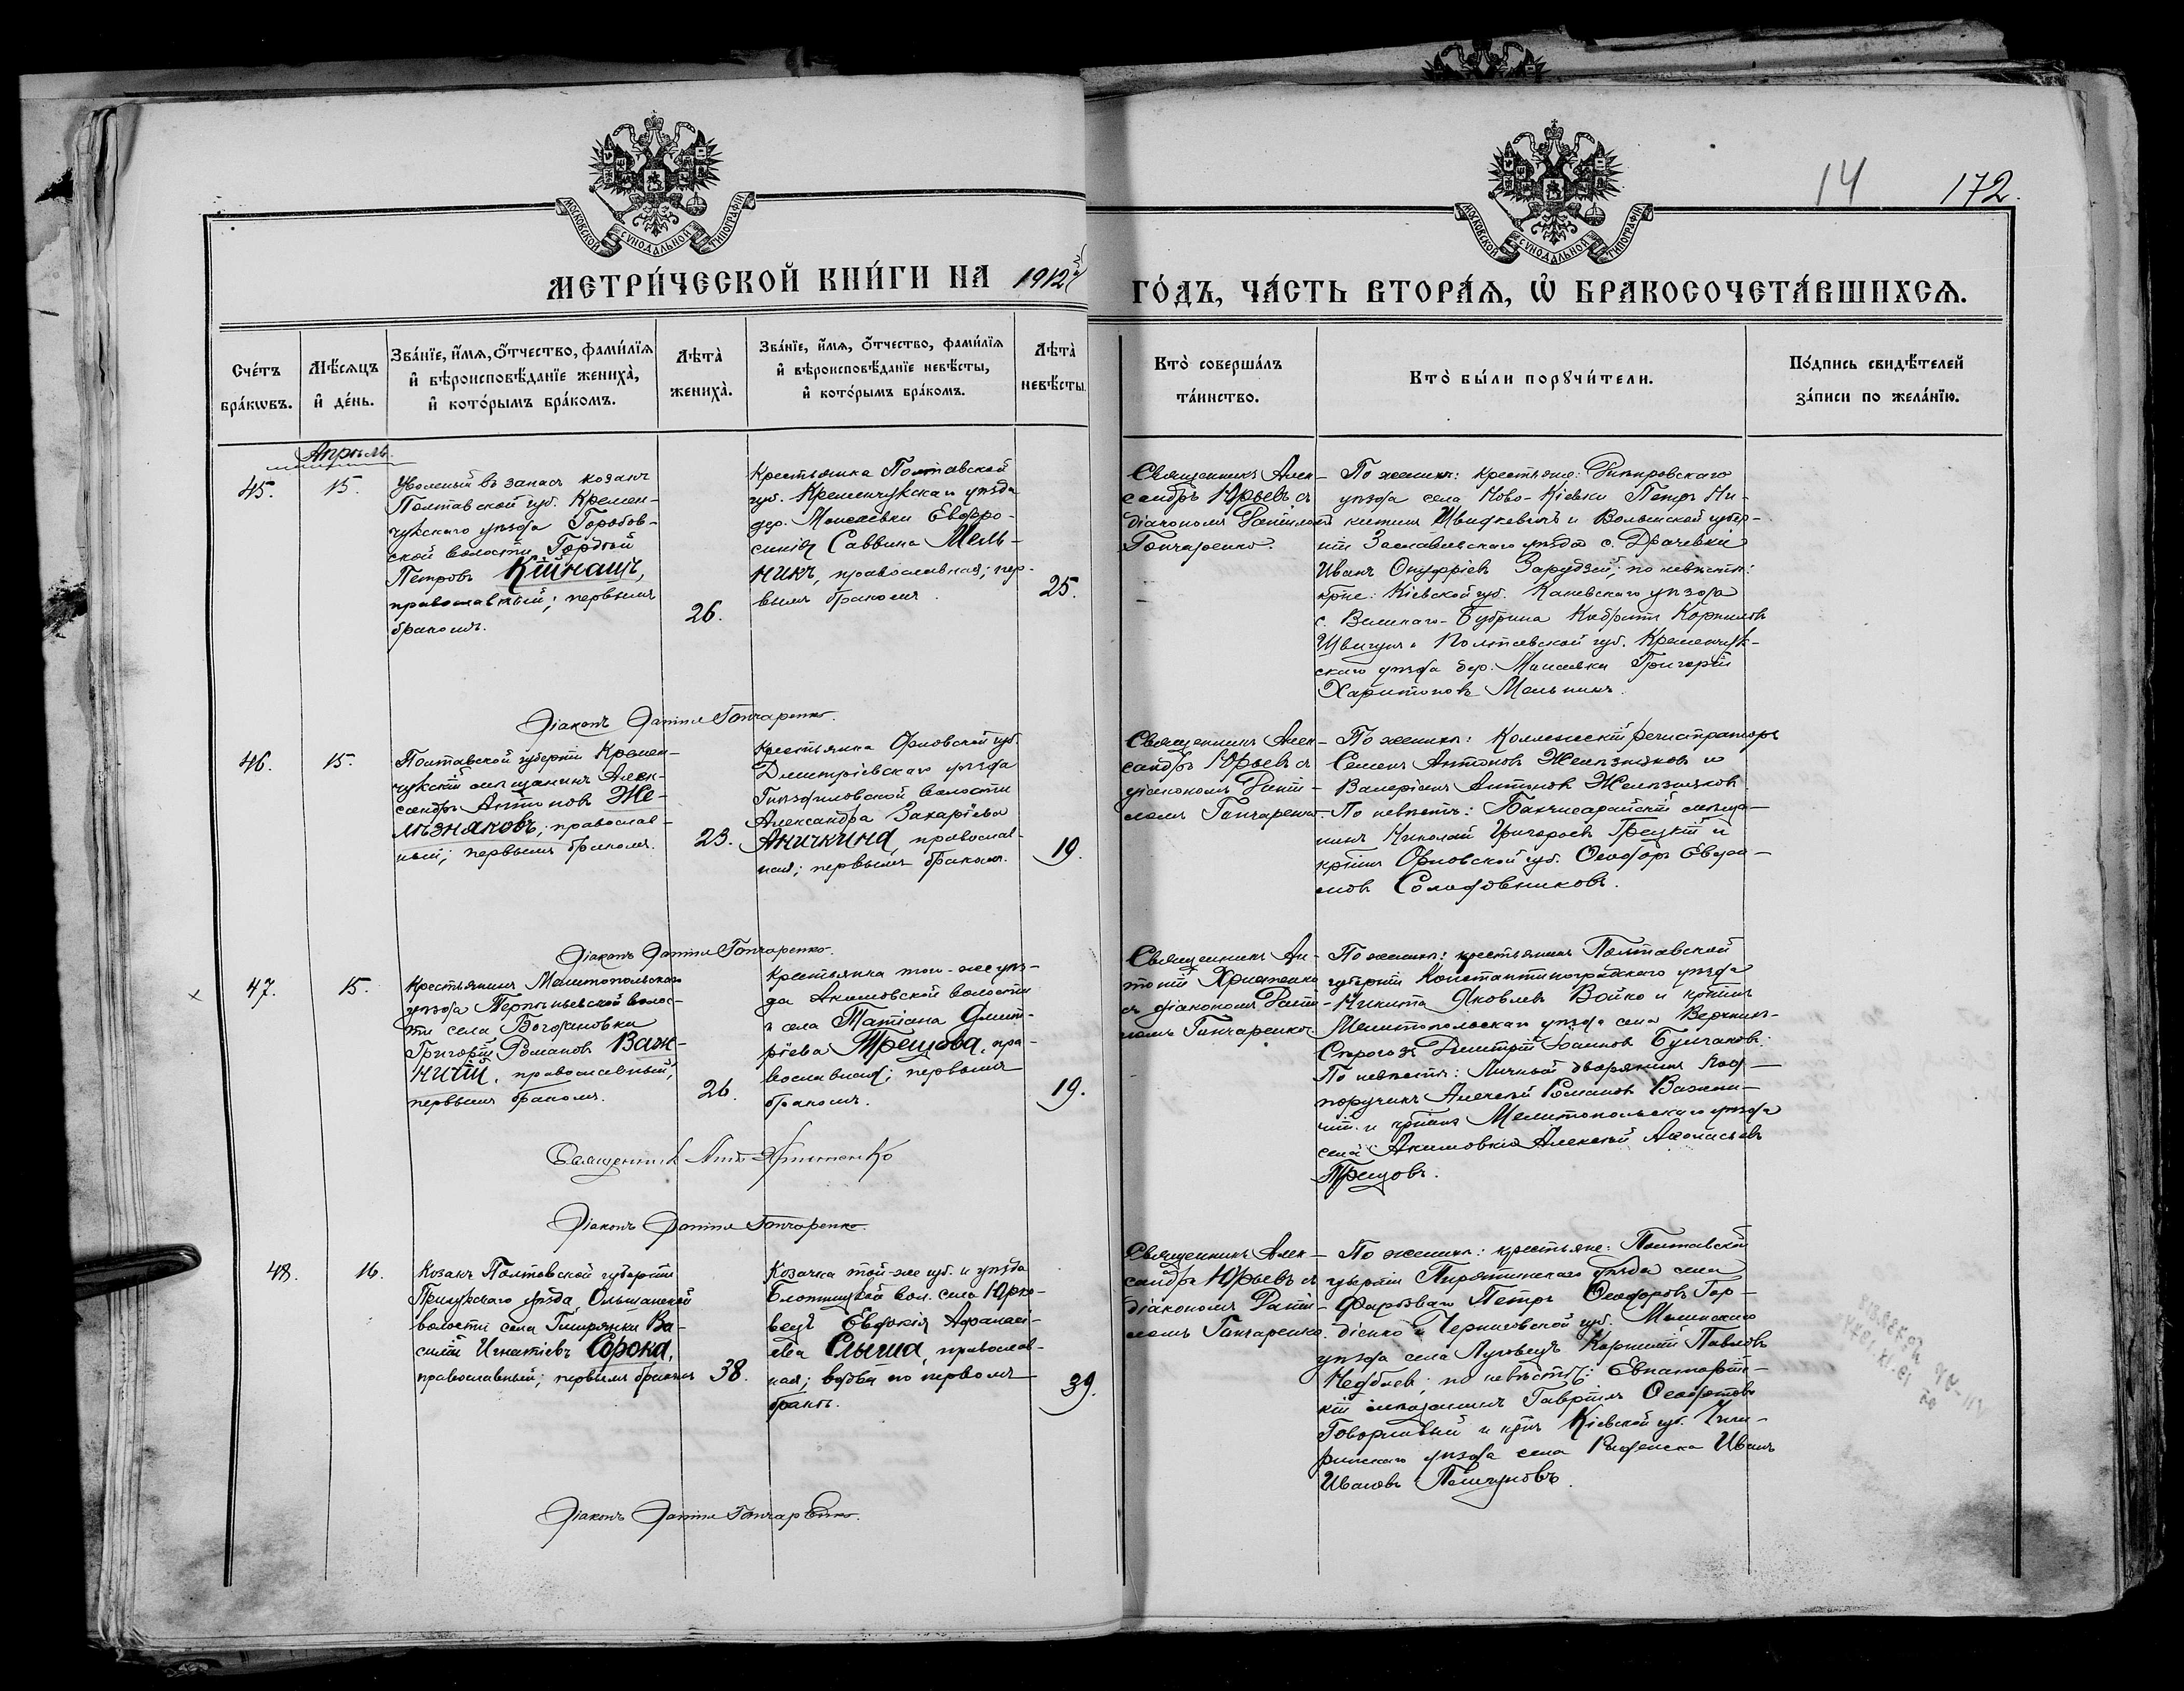 14
172.
МОСКОВСКОЙ СУНОДАЛЬНОЙ ТИПОГРАФІИ
МОСКОВСКОЙ СУНОДАЛЬНОЙ ТИПОГРАФІИ
МЕТРИ́ЧЕСКОЙ КНИ́ГИ НА 1912й
ГО́ДЪ, ЧА́СТЬ ВТОРА́Ѧ, Ѽ БРАКОСОЧЕТА́ВШИХСѦ.
Сче́тъ
бра́кѡвъ.
Мѣ́сѧцъ
и҆ де́нь.
Зва́нїе, и҆́мѧ, ѻ҆́тчество, фами́лїѧ
и҆ вѣроисповѣ́данїе жениха̀,
и҆ кото́рымъ бра́комъ.
Лѣ́та
жениха̀.
Зва́нїе, и҆́мѧ, ѻ҆́тчество, фами́лїѧ
и҆ вѣроисповѣ́данїе невѣ́сты,
и҆ кото́рымъ бра́комъ.
Лѣ́та
невѣ́сты.
Кто̀ соверша́лъ
та́инство.
Кто̀ бы́ли порꙋчи́тели.
По́дпись свидѣ́телей
за́писи по жела́нїю.
Апрѣль.
45.
15.
Уволеный въ запасъ козакъ
Полтавской губ. Кремен-
чугскаго уѣзда
ской волости Гордѣй
Петровъ
православный; первымъ
бракомъ.
26.
Крестьянка Полтавской
губ. Кременчукскаго уѣзда
дер. Моисеевки Евфро-
синія Саввина Мель-
никъ, православная; пер-
вымъ бракомъ.
25.
Священникъ Алек-
сандръ Юрьевъ съ
діакономъ Даніиломъ
Гончаренко.
По женихѣ: крестьяне: Днѣпровскаго
уѣзда села Ново-Кіевки Петръ Ни-
китинъ и Волынской губер-
ніи Заславльскаго уѣзда с. Драчевки
Иванъ Онуфріевъ Зарудзей; по невѣстѣ:
крне: Кіевской губ. Каневскаго уѣзда
с. Великаго-Букрина Корниловъ
и Полтавской губ. Кременчук-
скаго уѣзда дер. Моисеевки Григорій
Харитоновъ Мельникъ.
Діаконъ Даніилъ Гончаренко.
46.
15.
Полтавской губерніи Кремен-
чукскій мѣщанинъ Алек-
сандръ Антоновъ Же-
лѣзняковъ; православ-
ный; первымъ бракомъ.
23.
Крестьянка Орловской губ.
Дмитріевскаго уѣзда
Гнѣздиловской волости
Александра Захаріева
Аничкина, православ-
ная; первымъ бракомъ.
19.
Священникъ Алек-
сандръ Юрьевъ съ
діакономъ Даніи-
ломъ Гончаренко.
По женихѣ: Коллежскій регистраторъ
Семенъ Антоновъ Желѣзняковъ и
Валеріанъ Антоновъ Желѣзняковъ.
По невѣстѣ: Бахчисарайскій мѣща-
нинъ Николай Григорьевъ Грецкій и
кр-нинъ Орловской губ. Ѳеодоръ
мовъ Солодовниковъ.
Діаконъ Даніилъ Гончаренко.
47.
15.
Крестьянинъ Мелитопольскаго
уѣзда Терпѣньевской волос-
ти села Богдановки
Григорій Романовъ Важ-
ничій, православный;
первымъ бракомъ.
26.
Крестьянка того-же уѣз-
да Акимовской волости
и села Татіана Дмит-
ріева Трещова, пра-
вославная; первымъ
бракомъ.
19.
Священникъ Ан-
тоній Христенко
съ діакономъ Даніи-
ломъ Гончаренко.
По женихѣ: крестьянинъ Полтавской
губерніи Константиноградскаго уѣзда
Никита Яковлевъ Бойко и кр-нинъ
Мелитопольскаго уѣзда села Верхнихъ-
Сѣрогозъ Дмитрій Іоанновъ Булгаковъ.
По невѣстѣ: Личный дворянинъ под-
поручикъ Алексѣй Романовъ Важни-
чій и кр-нинъ Мелитопольскаго уѣзда
села Акимовки Алексѣй Аѳанасьевъ
Трещовъ.
Священникъ Антоній Христенко
Діаконъ Даніилъ Гончаренко.
48.
16.
Козакъ Полтавской губерніи
Прилукскаго уѣзда Ольшанской
волости села Гмирянки Ва-
силій Игнатіевъ Сорока,
православный; первымъ бракомъ
38.
Козачка той-же губ. и уѣзда
вол. села Юрко-
вецъ Евдокія Афанасі-
ева Слыша, православ-
ная; вдова по первомъ
бракѣ.
39.
Священникъ Алек-
сандръ Юрьевъ съ
діакономъ Даніи-
ломъ Гончаренко.
По женихѣ: крестьяне: Полтавской
губерніи Пирятинскаго уѣзда села
Петръ Ѳеодоровъ Гор-
діенко и Черниговской губ. Мглинскаго
уѣзда села Луговецъ Корнилій Павловъ
по невѣстѣ: Евпаторій-
кій мѣщанинъ Гавріилъ
Говорливый и кр-нъ Кіевской губ. Чиги-
ринскаго уѣзда села Иванъ
Ивановъ
Діаконъ Даніилъ Гончаренко.